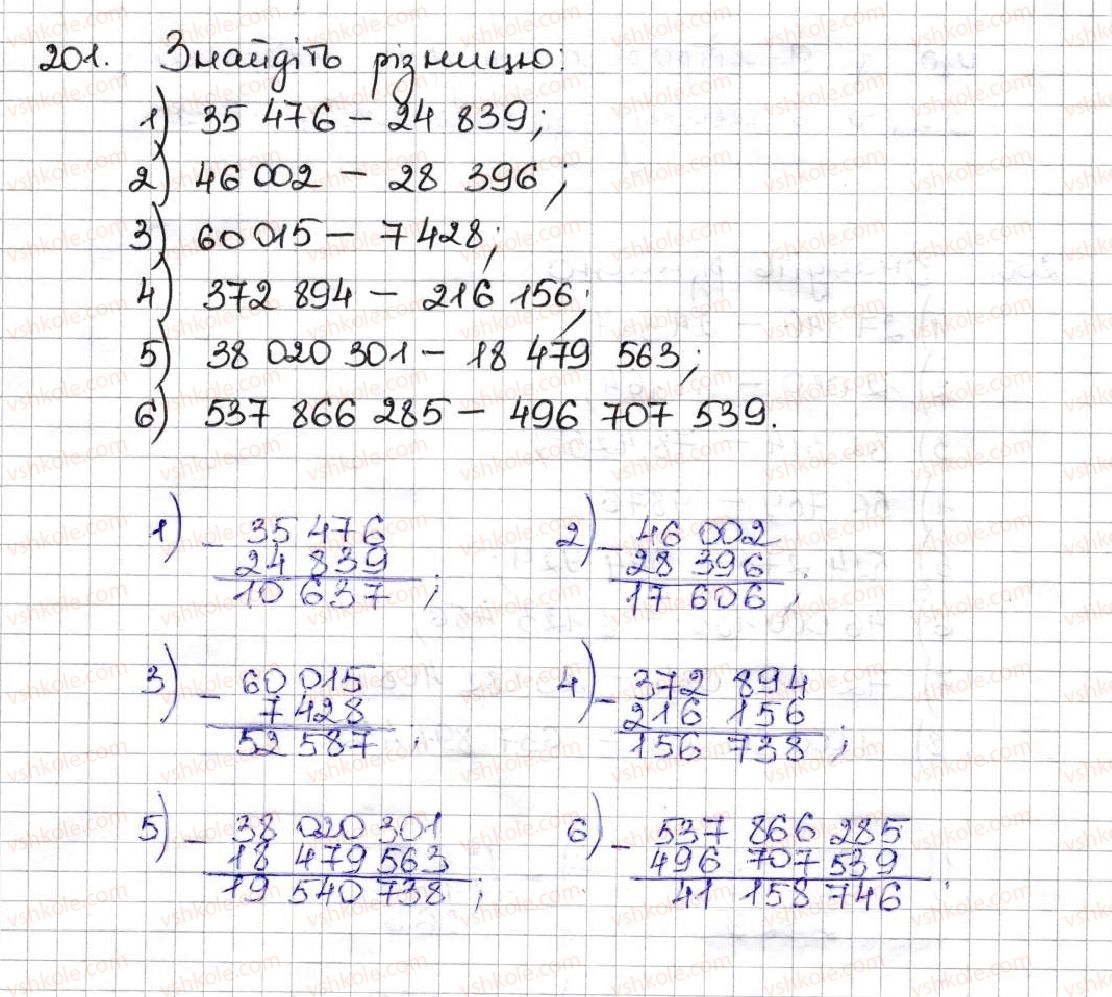 201. Знайдіть різницю:
1) 35 476 - 24 839;
2) 46 002 - 28 396;
3) 60 015 - 7 428;
4) 372 894 - 216 156;
5) 38 020 301 - 18 479 563;
6) 537 866 285 - 496 707 539.
1) - 35 476 2) - 46 002
24 839 28 396
10 637 ; 17 606 ;
3) - 60 015 4) - 372 894
7 428 216 156
52 587 ; 156 738 ;
5) - 38 020 301 6) - 537 866 285
18 479 563 496 707 539
19 540 738 ; 41 158 746 .
vshkole.com